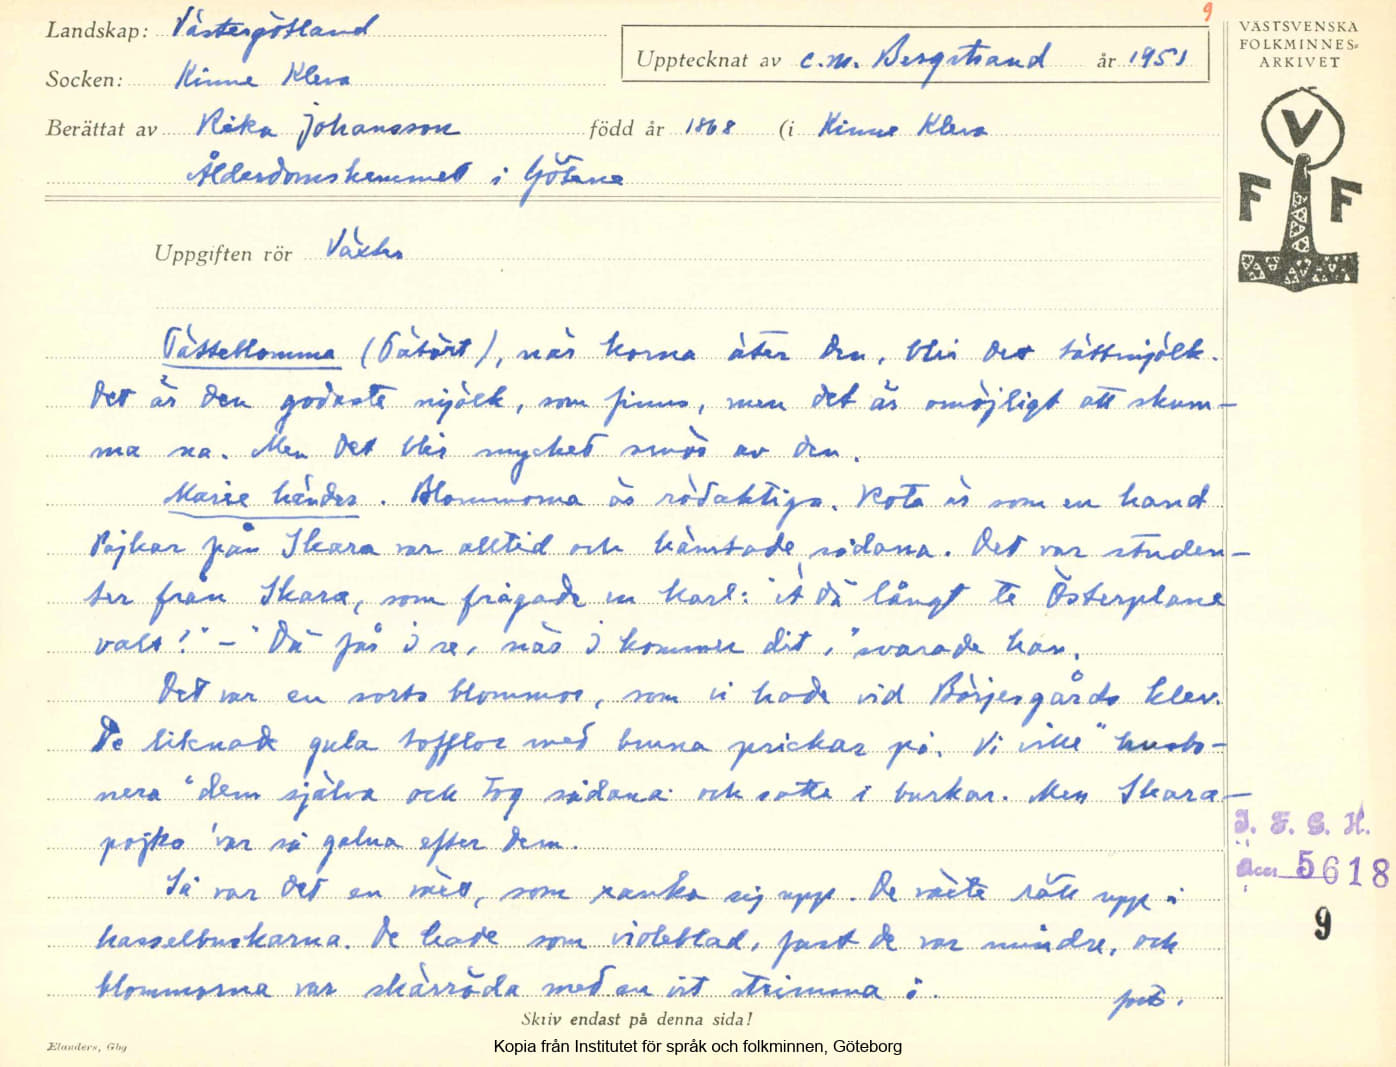 9
Landskap: Västergötland
Upptecknat av C.M. Bergstrand år 1951
VÄSTSVENSKA
FOLKMINNES-
ARKIVET
Socken: Kinne Kleva
Berättat av Rika Johansson född år 1868 (i Kinne Kleva
Ålderdomshemmet i Götene
V
F F
Uppgiften rör Växter
Tätteblomma (Tätört), när korna äter den, blir det tättmjölk.
Det är den godaste mjölk, som finns, men det är omöjligt att skum-
ma na. Men det blir mycket smör av den.
Marie händer. Blommorna är rödaktiga. Rota är som en hand
Pojkar från Skara var alltid och hämtade sådana. Det var studen-
ter från Skara, som frågade en karl: "ä dä långt te Österplana
vall?" - "Dä får I se, när I kommer dit," svarade han.
Det var en sorts blommor, som vi hade vid Börjesgårds klev.
De liknade gula tofflor med bruna prickar på. Vi ville "husbo-
nera" dem själva och tog sådana och satte i burkar. Men Skara-
pojka var så galna efter dem.
Så var det en växt, som ranka sig upp. De växte rätt upp i
hasselbuskarna. De hade som violblad, fast de var mindre, och
blommorna var skärröda med en vit strimma i.
forts.
I. F. G. H.
Acc 5618
9
Skriv endast på denna sida!
Elanders, Gbg
Kopia från Institutet för språk och folkminnen, Göteborg